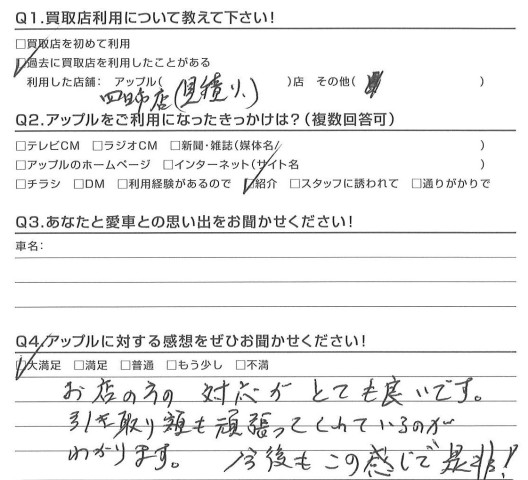 Q1.買取店利用について教えて下さい!
□買取店を初めて利用
□過去に買取店を利用したことがある
利用した店舗: アップル( )店 その他( )
四日市店(見積り、)
Q2.アップルをご利用になったきっかけは?(複数回答可)
□テレビCM □ラジオCM □新聞・雑誌(媒体名 )
□アップルのホームページ □インターネット(サイト名 )
□チラシ □DM □利用経験があるので □紹介 □スタッフに誘われて □通りがかりで
Q3.あなたと愛車との思い出をお聞かせください!
車名:
Q4.アップルに対する感想をぜひお聞かせください!
□大満足 □満足 □普通 □もう少し □不満
お店の方の対応がとても良いです。
引き取り額も頑張ってくれているのが
わかります。今後もこの感じで是非!